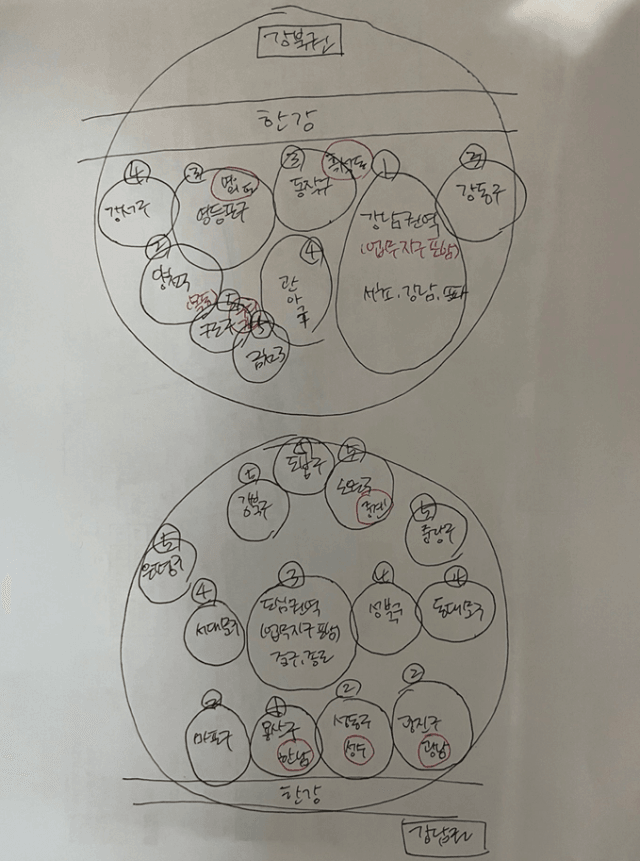 강북권
한강
④
강서구
②
여의도
영등포구
③
동작구
흑석동
①
강남권역
(업무지구 포함)
서초, 강남, 송파
②
강동구
②
양천구
(목동)
⑤
구로구
⑤
금천구
④
관악구
⑤
도봉구
⑤
강북구
⑤
노원구
중계
⑤
중랑구
⑤
은평구
④
서대문구
③
도심권역
(업무지구 포함)
중구, 종로
④
성북구
④
동대문구
②
마포구
①
용산구
한남
②
성동구
성수
②
광진구
광남
한강
강남권